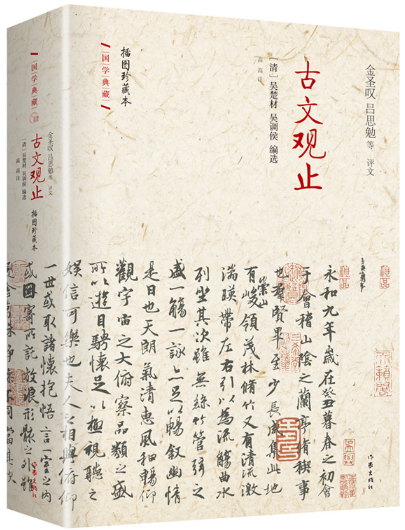 金圣叹 吕思勉 等 评文
古文观止
[清] 吴楚材 吴调侯 编选
插图珍藏本
国学典藏
永和九年歲在癸丑暮春之初會
于會稽山陰之蘭亭脩稧事
也羣賢畢至少長咸集此地
有崇山峻領茂林脩竹又有清流激
湍暎帶左右引以為流觴曲水
列坐其次雖無絲竹管弦之
盛一觴一詠亦足以暢敘幽情
是日也天朗氣清惠風和暢仰
觀宇宙之大俯察品類之盛
所以遊目騁懷足以極視聽之
娛信可樂也夫人之相與俯仰
一世或取諸懷抱悟言一室之內
或因寄所託放浪形骸之外
作家出版社
国学典藏
金圣叹 吕思勉 等 评文
古文观止
[清] 吴楚材 吴调侯 编选
插图珍藏本
作家出版社